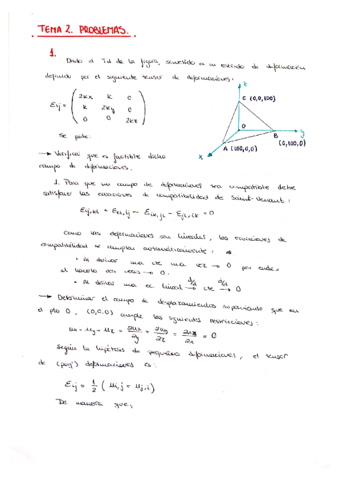 TEMA 2. PROBLEMAS.
1.
Dado el Td de la figura, sometido a un estado de deformación
definido por el siguiente tensor de deformaciones:
Eij = ( 2kx k c
k 2ky c
c c 2kz )
z
C (0,0,100)
O
B
y
(0,100,0)
x
A (100,0,0)
Se pide:
→ Verificar que es factible dicho
campo de deformaciones.
1. Para que un campo de deformaciones sea compatible debe
satisfacer las ecuaciones de compatibilidad de Saint-Venant:
Eij,kl + Ekl,ij − Eik,jl − Ejl,ik = 0
Como las deformaciones son lineales, las ecuaciones de
compatibilidad se cumplen automáticamente:
• Al derivar una cte una vez → 0 por ende,
al hacerlo dos veces → 0.
• Al derivar una ec lineal → cte → 0
→ Determinar el campo de desplazamientos suponiendo que en
el pto O, (0,0,0) cumple las siguientes restricciones:
= 0
Según la hipótesis de pequeñas deformaciones, el tensor
de (peq) deformaciones es:
Eij = 1/2 ( ui,j + uj,i )
De manera que,